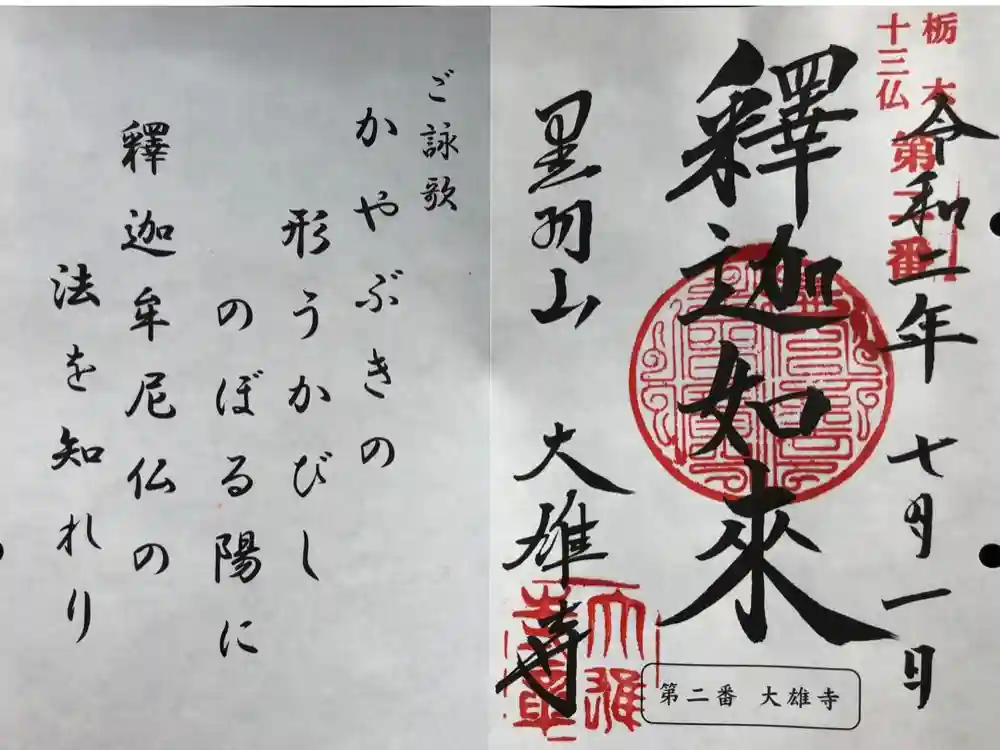 栃木
十三仏
第二番
令和二年七月一日
釋迦如來
黒羽山 大雄寺
第二番 大雄寺
ご詠歌
かやぶきの
形うかびし
のぼる陽に
釋迦牟尼仏の
法を知れり